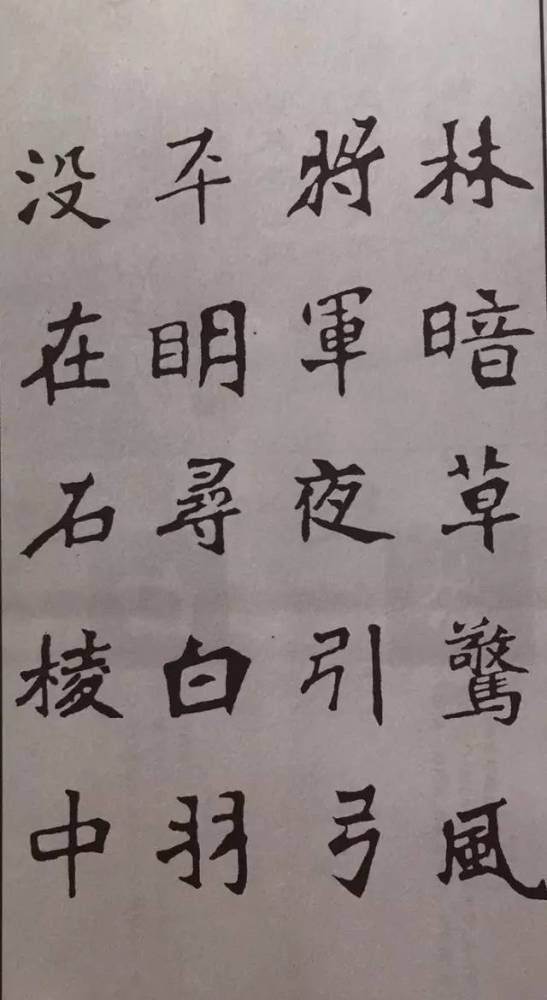 林暗草驚風
將軍夜引弓
平明尋白羽
没在石棱中